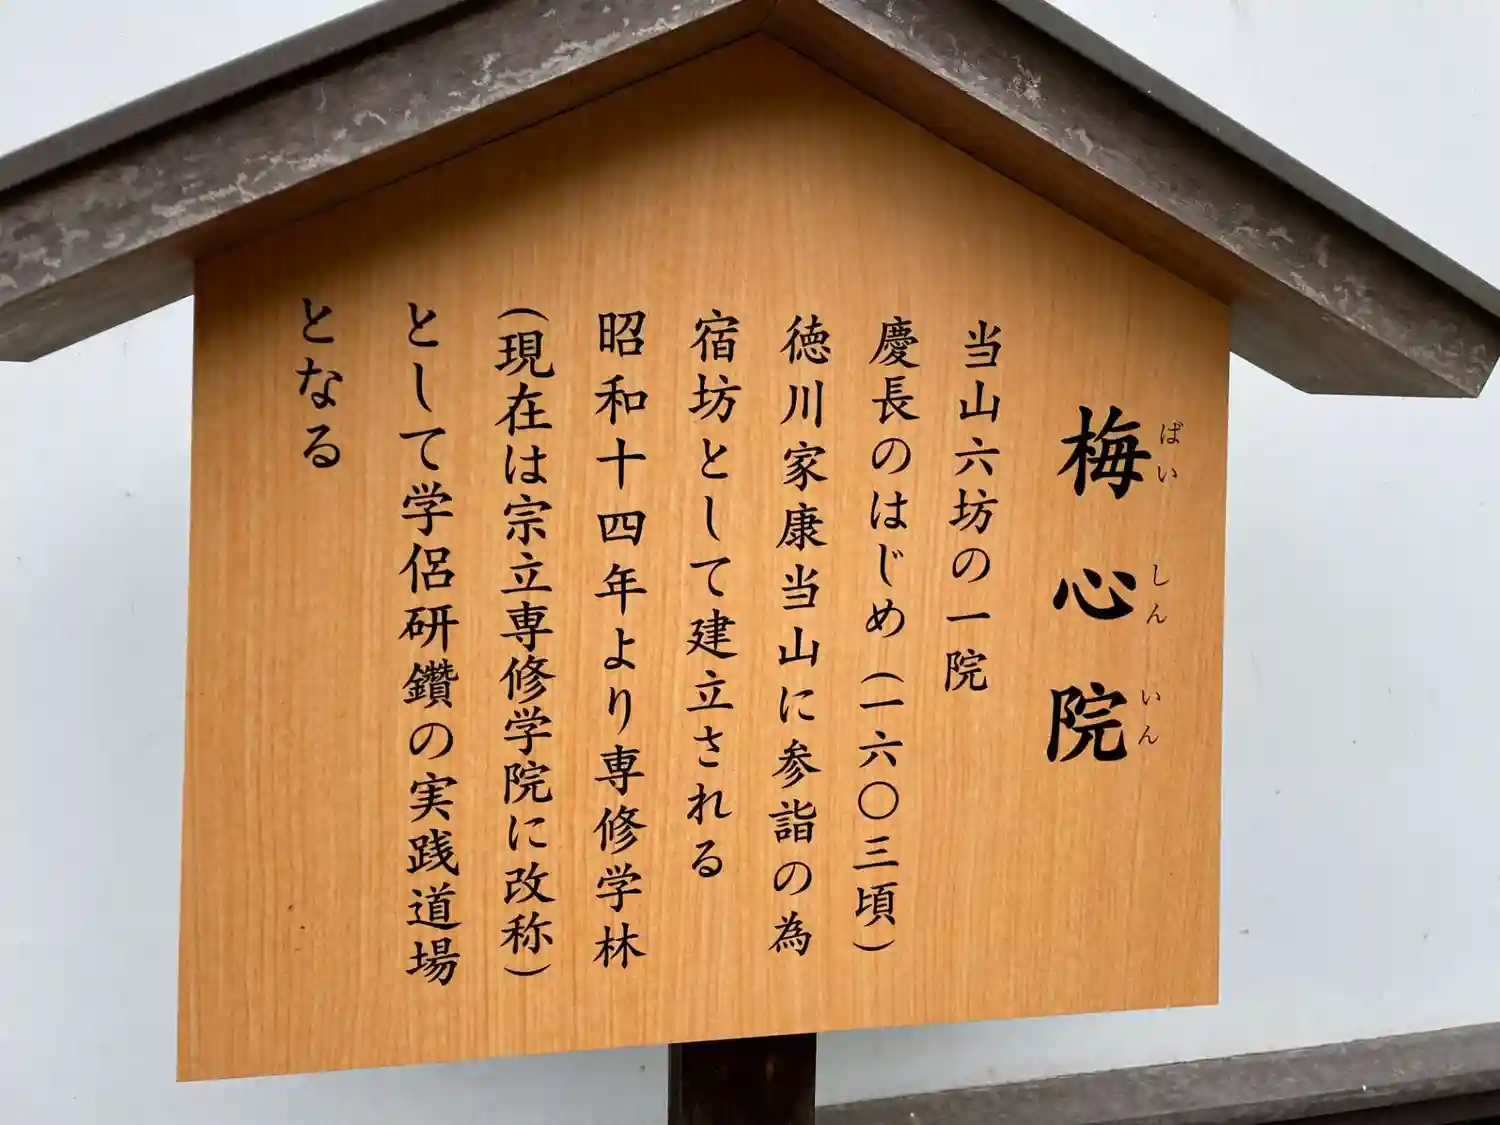 梅心院
ばい しん いん
当山六坊の一院
慶長のはじめ(一六〇三頃)
徳川家康当山に参詣の為
宿坊として建立される
昭和十四年より専修学林
(現在は宗立専修学院に改称)
として学侶研鑽の実践道場
となる